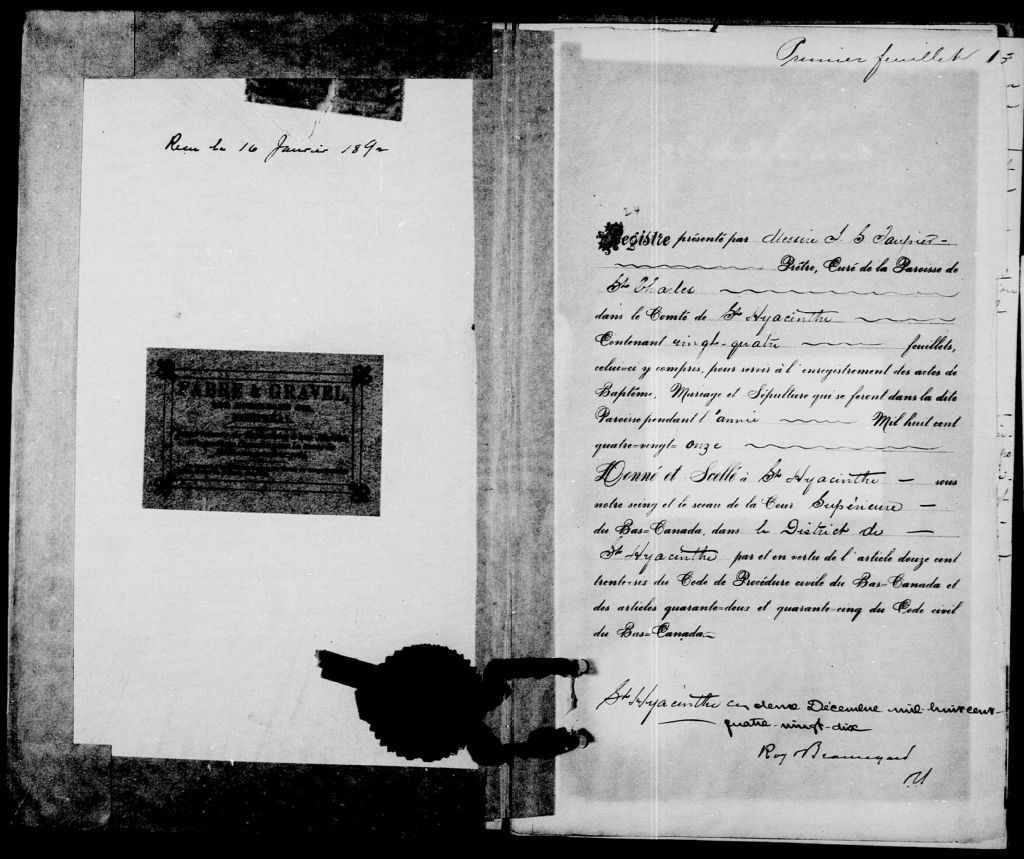 Premier feuillet 1
Reçu le 16 Janvier 1892
24
Registre présenté par Messire J. S. Taupier
Prêtre, Curé de la Paroisse de
St Charles
dans le Comté de St Hyacinthe
Contenant vingt-quatre feuillets,
celui-ci y compris, pour servir à l'enregistrement des actes de
Baptême, Mariage et Sépulture qui se feront dans la dite
Paroisse pendant l'année Mil huit cent
quatre-vingt-onze
Donné et Scellé à St Hyacinthe sous
notre seing et le sceau de la Cour Supérieure
du Bas-Canada, dans le District de
St Hyacinthe par et en vertu de l'article douze cent
trente-six du Code de Procédure civile du Bas-Canada et
des articles quarante-deux et quarante-cinq du Code civil
du Bas-Canada.
FABRE & GRAVEL,
St Hyacinthe ce deux Décembre mil huit cent
quatre-vingt-dix
Roy Beauregard